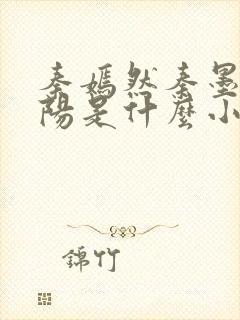 秦嫣然秦墨
陽是什麼小
錦竹